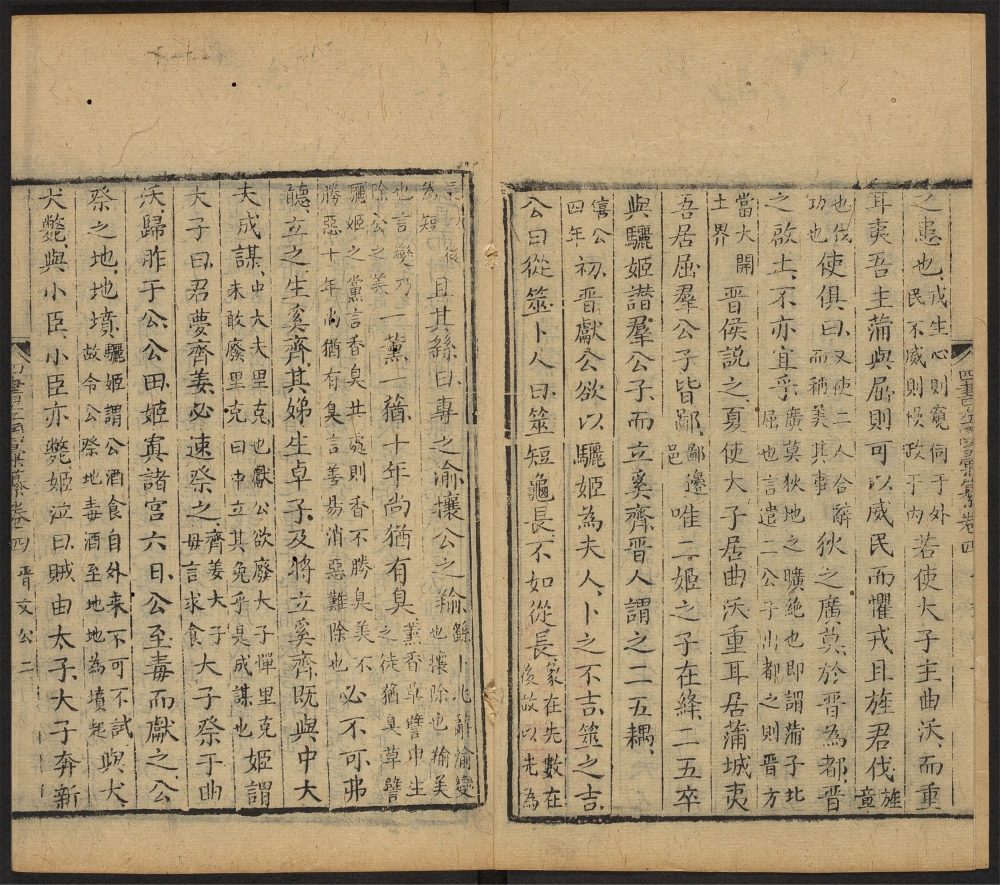 之患也戎生心則窺伺于外民不威則慢政于内若使大子主曲沃而重
耳夷吾主蒲與屈則可以威民而懼戎且旌君伐旌章
也伐功也使俱曰又使二人合辭而稱美其事狄之廣莫於晉為都晉
之啟土不亦宜乎廣莫狄地之曠絶也即謂蒲子北屈也言遣二公子出都之則晉方
當大開土界晉侯説之夏使大子居曲沃重耳居蒲城夷
吾居屈羣公子皆鄙鄙邊邑唯二姬之子在絳二五卒
與驪姬譖羣公子而立奚齊晉人謂之二五耦
僖公四年初晉獻公欲以驪姬為夫人卜之不吉筮之吉
公曰從筮卜人曰筮短龜長不如從長象在先數在後故以先為
為短且其繇曰專之渝攘公之羭繇卜兆辭渝變
也攘除也羭美也言變乃除公之美一薰一蕕十年尚猶有臭薰香草譬申生之徒蕕臭草譬
驪姬之黨言香臭共處則香不勝臭美不勝惡十年尚猶有臭言善易消惡難除也必不可弗
聽立之生奚齊其娣生卓子及將立奚齊既與中大
夫成謀中大夫里克也獻公欲廢大子憚里克未敢廢里克曰中立其免乎是成謀也姬謂
大子曰君夢齊姜必速祭之齊姜大子母言求食大子祭于曲
沃歸胙于公公田姬寘諸宮六日公至毒而獻之公
祭之地地墳驪姬謂公酒食自外來不可不試故令公祭地毒酒至地地為墳起與犬
犬斃與小臣小臣亦斃姬泣曰賊由太子大子奔新
卷四 晉文公 二